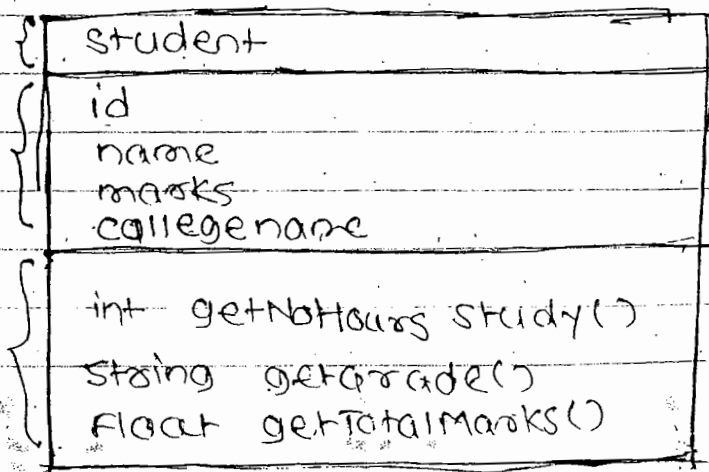 student
id
name
marks
collegename
int getNoHours study()
String getGrade()
Float getTotalMarks()